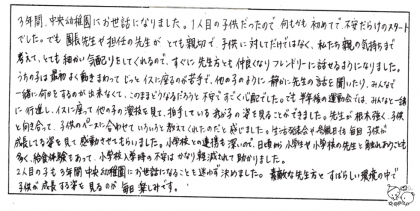 3年間、中央幼稚園にお世話になりました。1人目の子供だったので 何もかも 初めてで、不安だらけのスタート
でした。でも 園長先生や担任の先生が とても親切で 子供に対してだけではなく、私たち親の気持ちまで
考えて、とても細かい気配りをしてくれるので、すぐに先生方とも仲良くなり フレンドリーに話せるようになりました。
うちの子は最初よく動きまわって じっとイスに座るのが苦手で、他の子のように 静かに先生の話を聞いたり、みんなで
一緒に何かをする事が出来なくて、このままどうなるだろうと 不安で すごく心配でした。でも 半年後の運動会では、みんなと一緒
に行進し、イスに座って 他の子の演技を見て、拍手している 我が子の姿を見ることができました。先生が 根木強く、子供
と向き合って、子供のペースに合わせて いろいろと 教えてくれたのだと感じました。生活発表会や 毎日 子供が
成長してる姿を見て 感動させてもらいました。小学校との連携も深いので、日頃から小学生や小学校の先生と触れあうことも
多く、給食体験もあって、小学校入学時の不安は かなり軽減されて助かりました。
2人目の子も3年間 中央幼稚園にお世話になることを 迷わず決めました。素敵な先生方と すばらしい環境の中で
子供が成長する姿を見るのが 毎日 楽しみです。